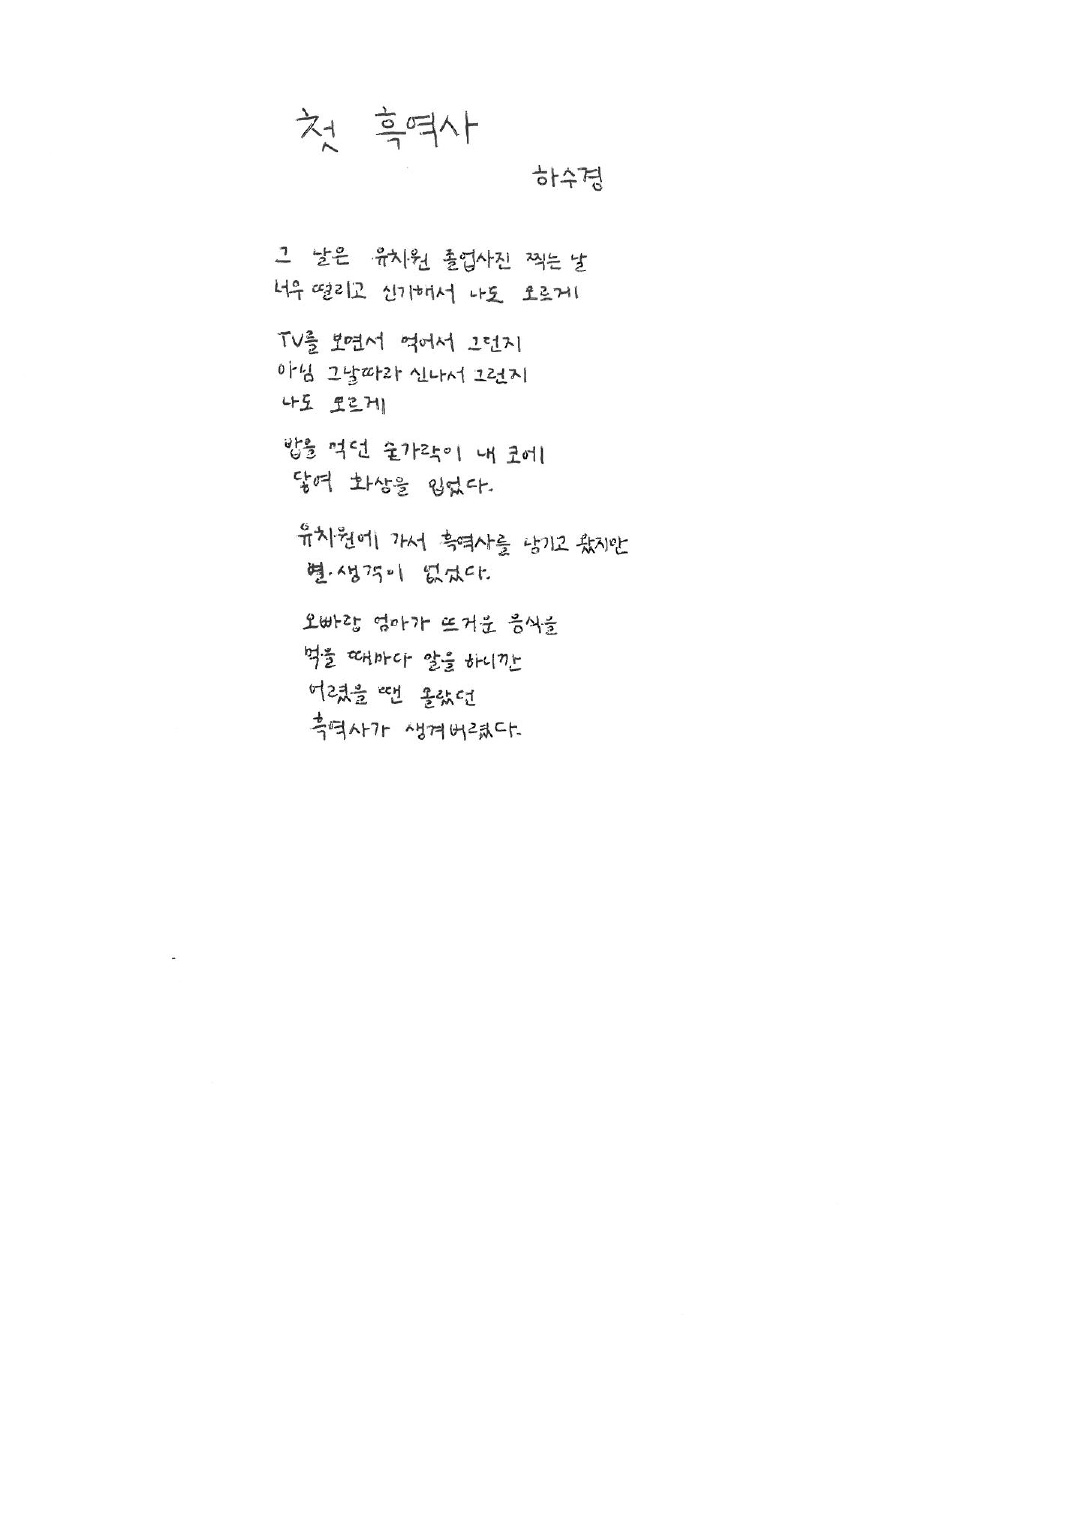 첫 흑역사
하수경
그 날은 유치원 졸업사진 찍는 날
너무 떨리고 신기해서 나도 모르게
TV를 보면서 먹어서 그런지
아님 그날따라 신나서 그런지
나도 모르게
밥을 먹던 숟가락이 내 코에
닿여 화상을 입었다.
유치원에 가서 흑역사를 남기고 왔지만
별.생각이 없었다.
오빠랑 엄마가 뜨거운 음식을
먹을 때마다 말을 하니깐
어렸을 땐 몰랐던
흑역사가 생겨버렸다.